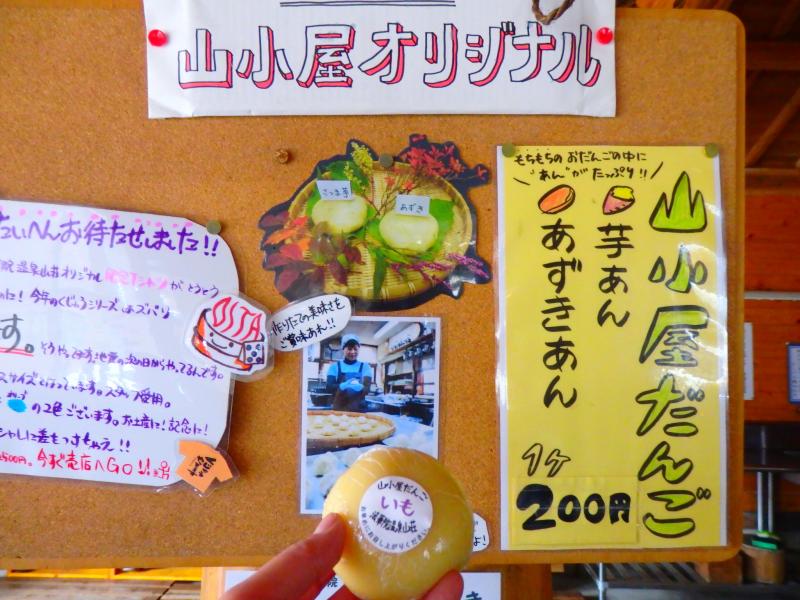 山小屋オリジナル
たいへんお待たせしました!!
院温泉山荘オリジナル
がとうとう
のに! 今年のくじゅうシリーズは
す。
の2色ございます。お土産に!記念に!
500円。今すぐ売店へGO!!
OITA
さつま芋
あずき
作りたての美味さを
ご賞味あれ!!
もちもちのおだんごの中に
"あん"がたっぷり!!
山小屋だんご
芋あん
あずきあん
1ヶ
200円
山小屋だんご
いも
法華院温泉山荘
お早めにお召し上がりください
よ!